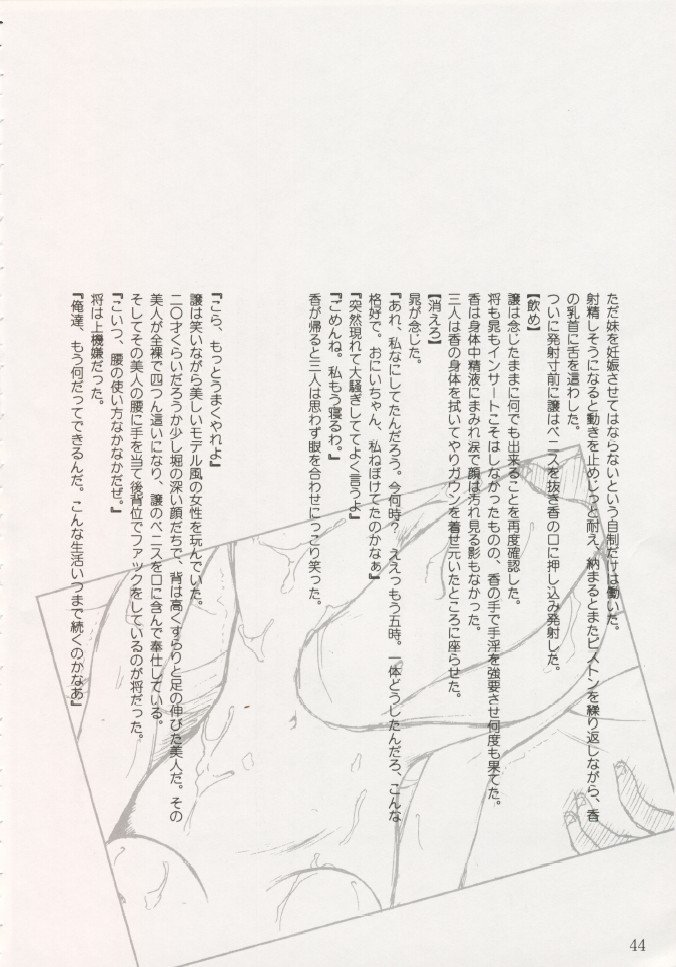 ただ妹を妊娠させてはならないという自制だけは働いた。
射精しそうになると動きを止めじっと耐え、納まるとまたピストンを繰り返しながら、香
の乳首に舌を這わした。
ついに発射寸前に譲はペニスを抜き香の口に押し込み発射した。
【飲め】
譲は念じたままに何でも出来ることを再度確認した。
将も晁もインサートこそはしなかったものの、香の手で手淫を強要させ何度も果てた。
香は身体中精液にまみれ涙で顔は汚れ見る影もなかった。
三人は香の身体を拭いてやりガウンを着せ元いたところに座らせた。
【消えろ】
晁が念じた。
『あれ、私なにしてたんだろう。今何時？　ええっもう五時。一体どうしたんだろ、こんな
格好で。おにいちゃん、私ねぼけてたのかなぁ』
『突然現れて大騒ぎしててよく言うよ』
『ごめんね。私もう寝るわ。』
香が帰ると三人は思わず眼を合わせにっこり笑った。
『こら、もっとうまくやれよ』
譲は笑いながら美しいモデル風の女性を玩んでいた。
二〇才くらいだろうか少し堀の深い顔だちで、背は高くすらりと足の伸びた美人だ。その
美人が全裸で四つん這いになり、譲のペニスを口に含んで奉仕している。
そしてその美人の腰に手を当て後背位でファックをしているのが将だった。
『こいつ、腰の使い方なかなかだぜ。』
将は上機嫌だった。
『俺達、もう何だってできるんだ。こんな生活いつまで続くのかなあ』
44